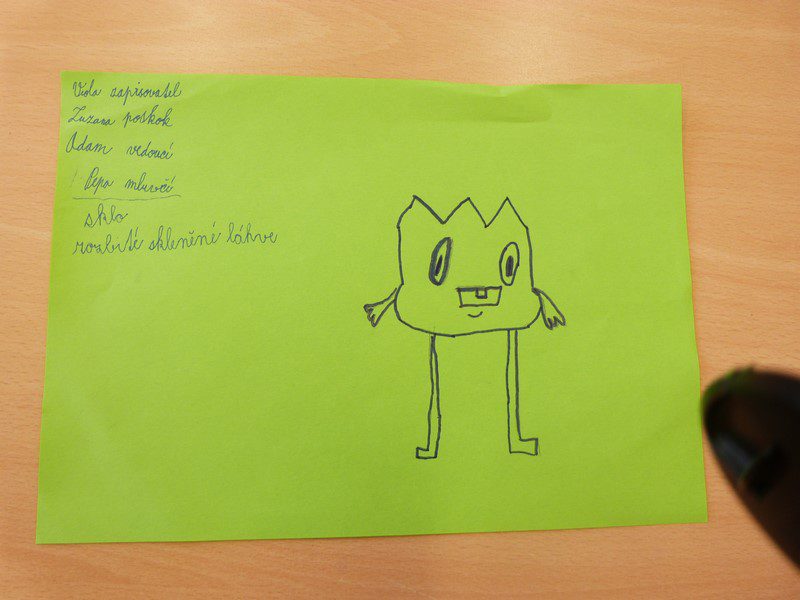 Viola zapisovatel
Zuzana poskok
Adam vedoucí
Pepa mluvčí
sklo
rozbité skleněné láhve